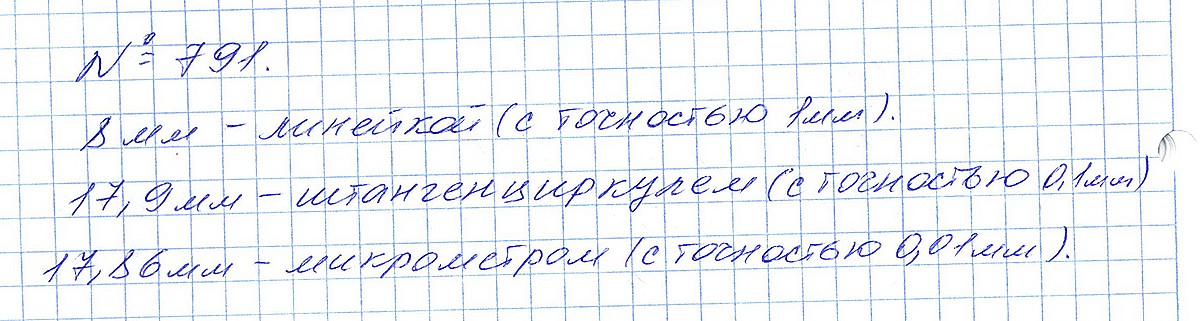 № 791.
8 мм – линейкой (с точностью 1мм).
17,9мм – штангенциркулем (с точностью 0,1мм)
17,86мм – микрометром (с точностью 0,01мм).